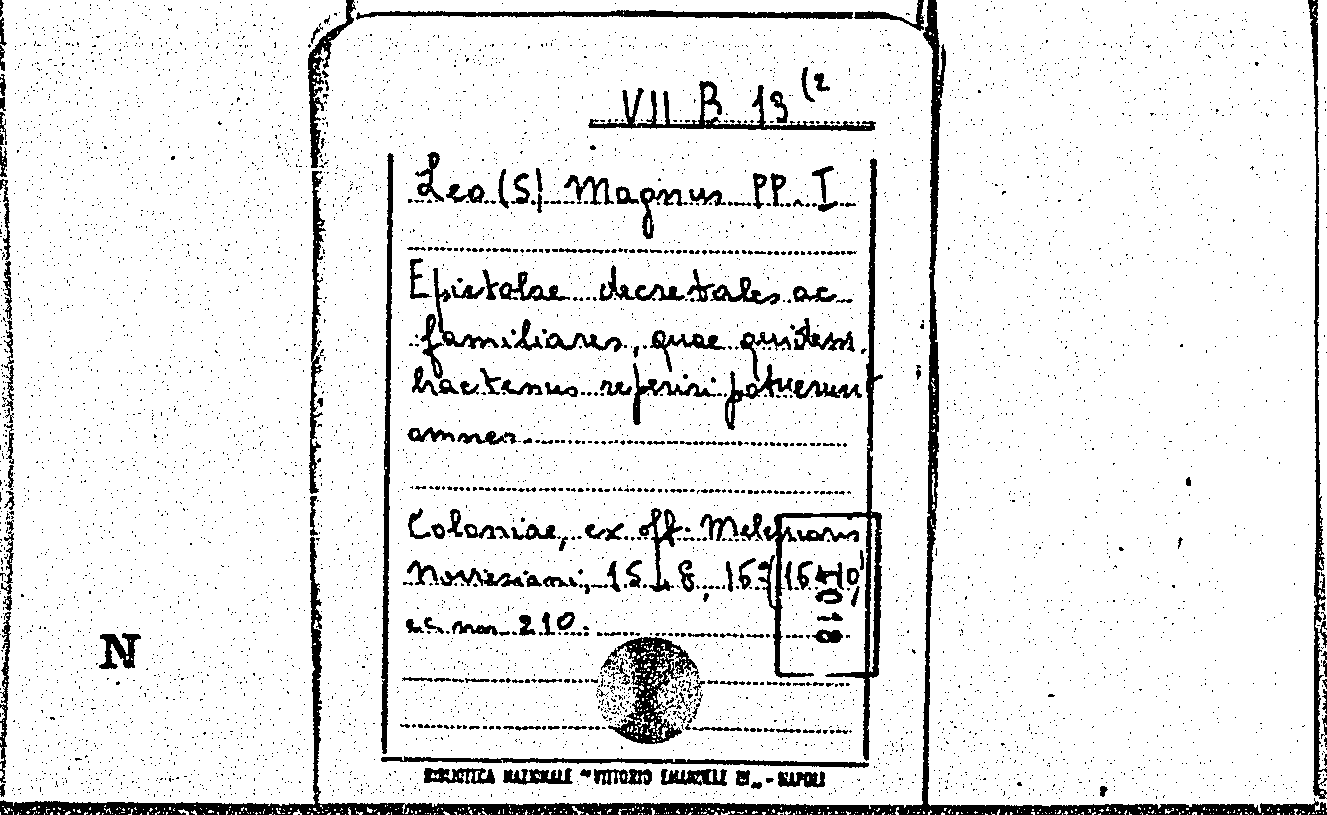 VII B 13 (2
Leo (S) Magnus PP. I
Epistolae decretales ac
familiares, quae quidem
hactenus reperiri potuerunt
omnes.
Coloniae, ex off. Melchioris
Novesiani, 15
nos 210.
N
BIBLIOTECA NAZIONALE "VITTORIO EMANUELE III" - NAPOLI